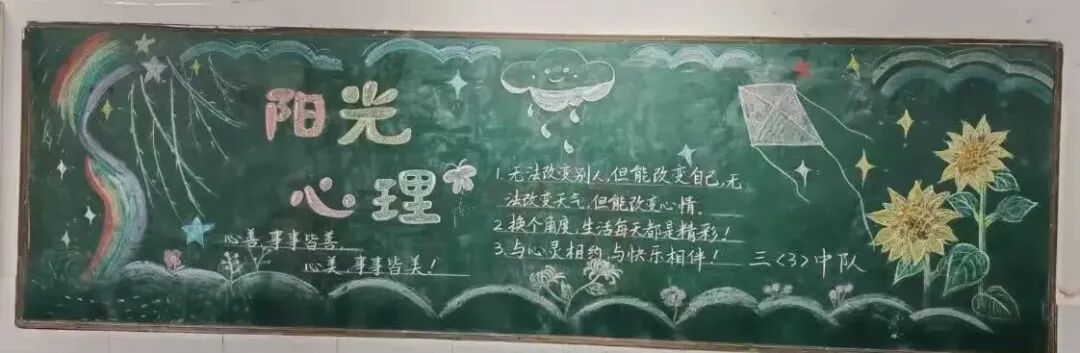 阳光
心理
心善,事事皆善,
心美,事事皆美!
1.无法改变别人,但能改变自己,无
法改变天气,但能改变心情。
2.换个角度,生活每天都是精彩!
3.与心灵相约,与快乐相伴!
三〈3〉中队